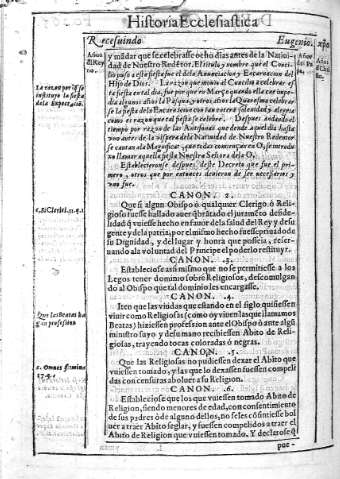 Historia Ecclesiastica
Recesuindo Eugenio.
y mādar que se celebrasse ocho dias antes de la Natiui-
dad de Nuestro Redētor. El titulo y nombre que el Conci-
lio puso a esta fiesta fue el de la Anunciacion, y Encarnacion del
Hijo de Dios. La razon que mouio al Concilio a celebrar es-
ta fiesta en tal dia, fue por que en Março quando ella cae impe-
dia algunos años la Pasqua, y otros años la Quaresma celebrar
se la fiesta deste Encarnacion con tanta solenidad y alegria
como es razon que tal fiesta se celebre. Despues andando el
tiempo por razon de las Antiphonas que desde aquel dia hasta
la visspera de la Natiuidad de Nuestro Redentor
se cantan a la Magnificat, que todas comiençan en O, se introdu-
xo llamar aquella fiesta Nuestra Señora de la O.
Establecieronse despues deste Decreto que fue el pri-
mero, otros que por entonces deuieron de ser necessarios: y
vno fue.
CANON. 2.
Que si algun Obispo ò qualquier Clerigo ò Reli-
gioso fuesse hallado auer q̄brātado el juramēto de fide-
lidad q̄ vuiesse hecho en fauor de la salud del Rey y de su
gente y de la patria, por el mismo hecho fuesse priuado de
su Dignidad, y del lugar y honra que posseia, reser-
uando a la voluntad del Principe el poderlo restituyr.
CANON. 3.
Estableciose assi mismo que no se permitiesse a los
Legos tener dominio sobre Religiosos, descomulgan-
do al Obispo que tal dominio les encargasse.
CANON. 4.
Iten que las viudas que estando en el siglo quisiessen
viuir como Religiosas (como oy viuen las que llamamos
Beatas) hiziessen profession ante el Obispo ò ante algū
ministro suyo y de su mano recibiessen Abito de Reli-
giosas, trayendo tocas coloradas ò negras.
CANON. 5.
Que las Religiosas no pudiessen dexar el Abito que
vuiessen tomado, y las que lo dexassen fuessen compeli-
das con censuras a boluer a su Religion.
CANON. 6.
Estableciose que los que vuiessen tomado Abito de
Religion, siendo menores de edad, con consentimiento
de sus padres ò de alguno dellos, no se les cōsintiesse bol-
uer a traer Abito seglar, y fuessen compelidos a traer el
Abito de Religion que vuiessen tomado. Y declarose q̄
pue-